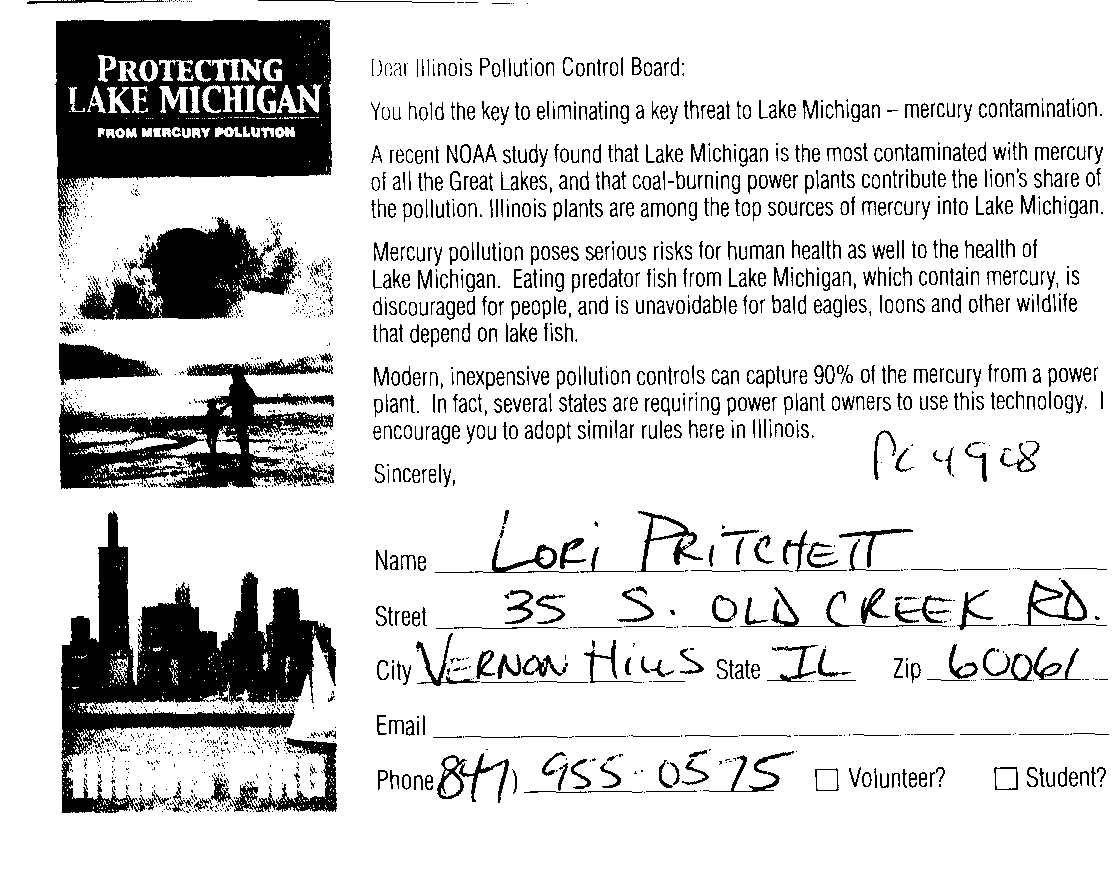 PROTECTING
LAKE MICHIGAN
FROM MERCURY POLLUTION
Dear Illinois Pollution Control Board:
You hold the key to eliminating a key threat to Lake Michigan – mercury contamination.
A recent NOAA study found that Lake Michigan is the most contaminated with mercury
of all the Great Lakes, and that coal-burning power plants contribute the lion's share of
the pollution. Illinois plants are among the top sources of mercury into Lake Michigan.
Mercury pollution poses serious risks for human health as well to the health of
Lake Michigan. Eating predator fish from Lake Michigan, which contain mercury, is
discouraged for people, and is unavoidable for bald eagles, loons and other wildlife
that depend on lake fish.
Modern, inexpensive pollution controls can capture 90% of the mercury from a power
plant. In fact, several states are requiring power plant owners to use this technology. I
encourage you to adopt similar rules here in Illinois.
PC 4908
Sincerely,
Name LORI PRITCHETT
Street 35 S. OLD CREEK RD.
City VERNON HILLS State IL Zip 60061
Email
Phone 847) 955-0575 Volunteer? Student?